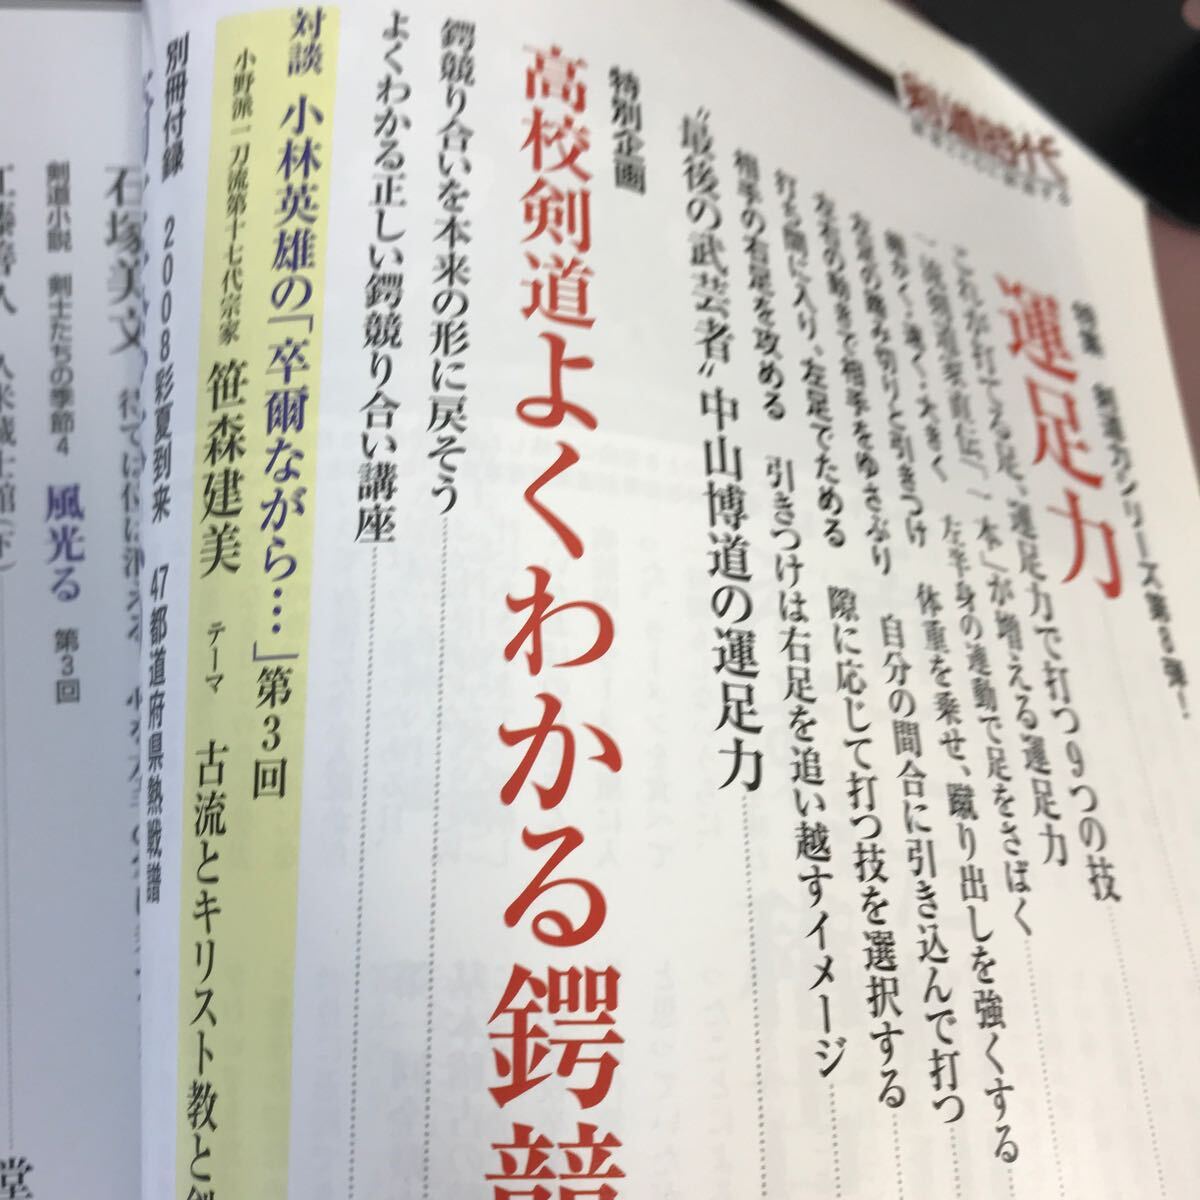 剣道時代
特集 剣道力シリーズ第8弾!
運足力
これが打てる足、運足力で打つ9つの技
「一本」が増える運足力
左半身の連動で足をさばく
体重を乗せ、蹴り出しを強くする
自分の間合に引き込んで打つ
左右の動きで相手をゆさぶり 隙に応じて打つ技を選択する
打ち間に入り、左足でためる 引きつけは右足を追い越すイメージ
相手の右足を攻める
“最後の武芸者”中山博道の運足力
特別企画
高校剣道よくわかる鍔競
鍔競り合いを本来の形に戻そう
よくわかる正しい鍔競り合い講座
対談 小林英雄の「卒爾ながら…」第3回
小野派一刀流第十七代宗家 笹森建美 テーマ 古流とキリスト教と
別冊付録 2008彩夏到来 47都道府県熱戦譜
石塚美文
剣道小説 剣士たちの季節4 風光る 第3回
堂